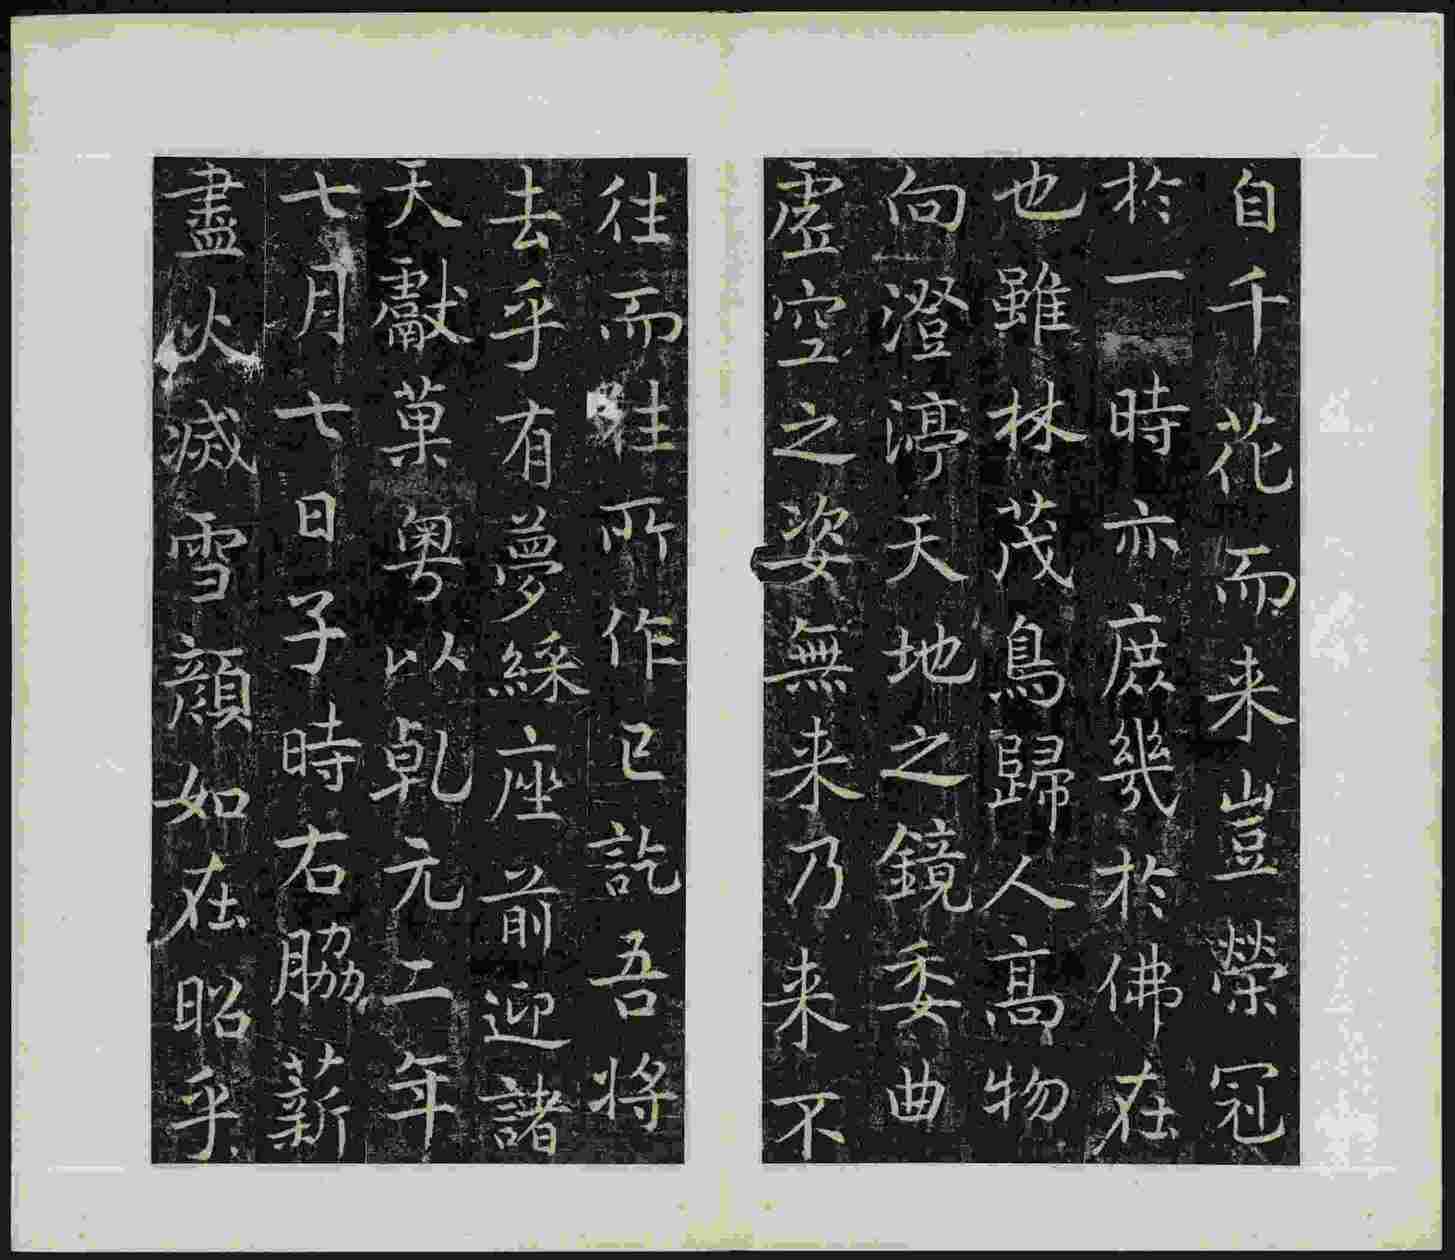 自千花而来豈榮冠
於一時亦庶幾於佛在
也雖林茂鳥歸人高物
向澄渟天地之鏡委曲
虛空之姿無来乃来不
往而往所作已訖吾將
去乎有夢綵座前迎諸
天獻菓粤以乹元二年
七月七日子時右脇薪
盡火滅雪顔如在昭乎